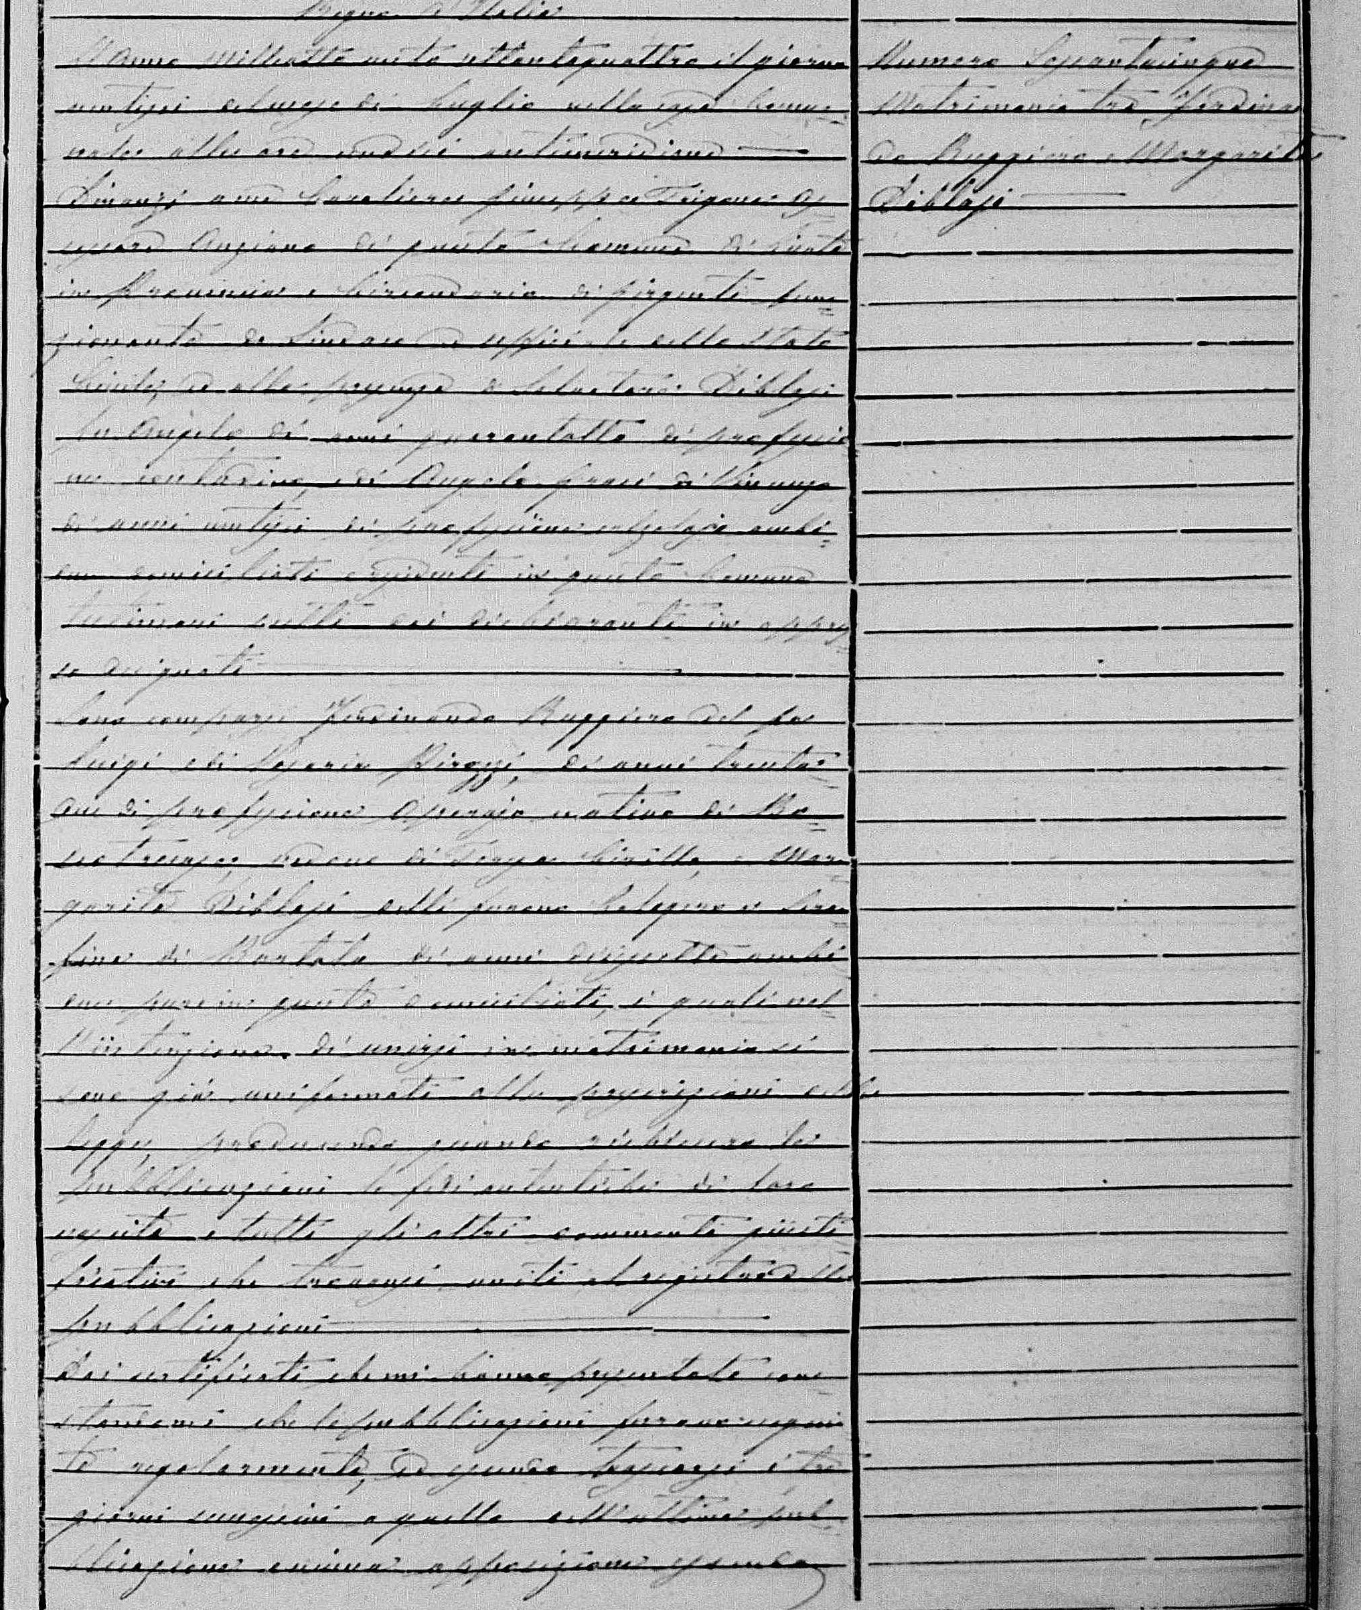 Regno d'Italia
L'Anno milleotto cento ottantaquattro il giorno
ventisei del mese di Luglio nella casa Comu=
nale alle ore undici antimeridiane
Dinanzi a me Cavaliere Giuseppe Trigona As=
sessore Anziano di questo Comune di
in Provincia e Circondario di Girgenti fun=
zionante da Sindaco ed uffiziale dello Stato
Civile, ed alla presenza di Salvatore Diblasi
fu Angelo di anni quarantotto di professio
ne contadino, e di Angelo di Vincenzo
di anni ventisei di professione calzolajo ambi=
due domiciliati e residenti in questo Comune
testimoni scelti dai dichiaranti in appres=
so designati
Sono comparsi Ferdinando Ruggiero del fu
Luigi e di Saveria Pirozzi, di anni trenta=
due di professione Operajo nativo di Bo=
scotrecase, vedovo di Teresa Cirillo, e Mar=
garita Diblasi delli furono Calogero e Sera=
fina di Bartolo di anni diciasette ambi
due pure in questo domiciliati, i quali nel=
l'intenzione di unirsi in matrimonio si
sono già uniformati alle prescrizioni della
Legge, producendo quando richiesero le
pubblicazioni le fedi autentiche di loro
nascita e tutti gli altri documenti giusti=
ficativi che trovansi uniti al registro delle
pubblicazioni
Dai certificati che mi hanno presentato con=
standomi che le pubblicazioni furono esegui=
te regolarmente, ed essendo trascorsi i tre
giorni successivi a quello dell'ultima pub=
blicazione niuna opposizione essendo
Numero Sessantacinque
Matrimonio tra Ferdinan
do Ruggiero e Margarita
Diblasi